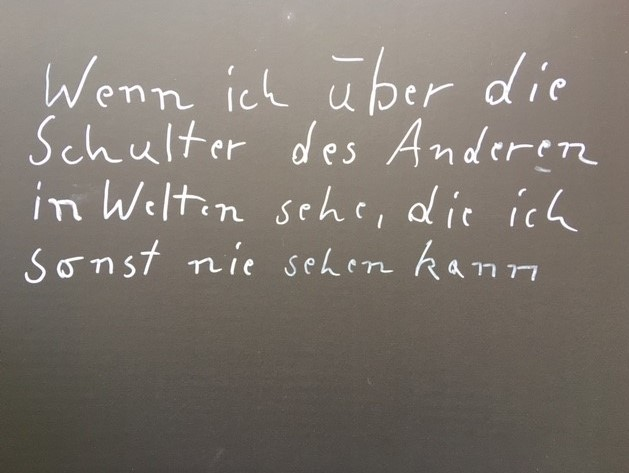 Wenn ich über die
Schulter des Anderen
in Welten sehe, die ich
sonst nie sehen kann